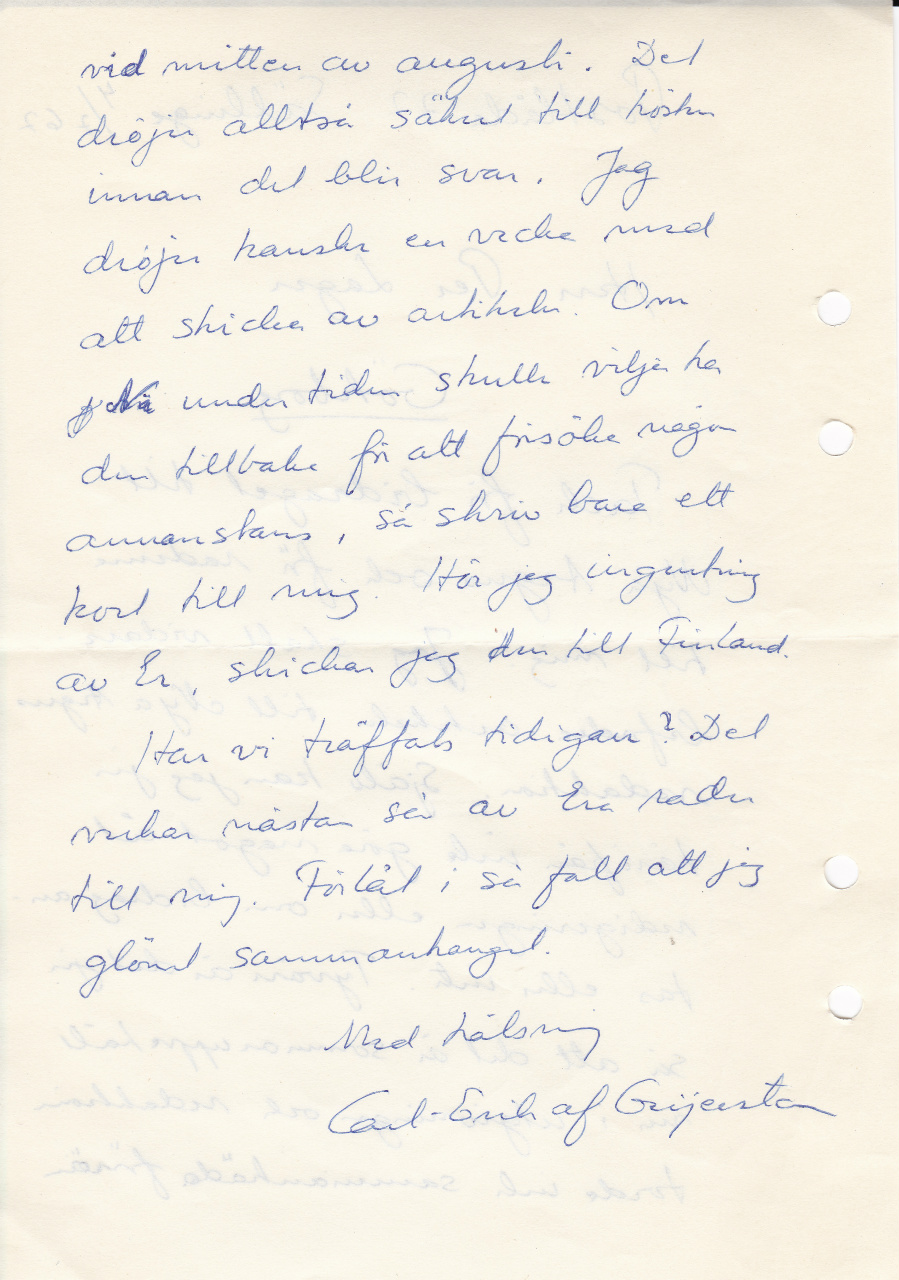 vid mitten av augusti. Det
dröjer alltså säkert till hösten
innan det blir svar. Jag
dröjer kanske en vecka med
att skicka av artikeln. Om
Ni under tiden skulle vilja ha
den tillbaka för att försöka någon
annanstans, så skriv bara ett
kort till mig. Hör jag ingenting
av Er, skickar jag den till Finland.
Har vi träffats tidigare? Det
verkar nästan så av Era rader
till mig. Förlåt i så fall att jag
glömt sammanhanget.
Med hälsning
Carl-Erik af Geijerstam